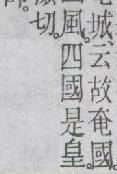 城。云故奄國。
風。四國是皇。
切。